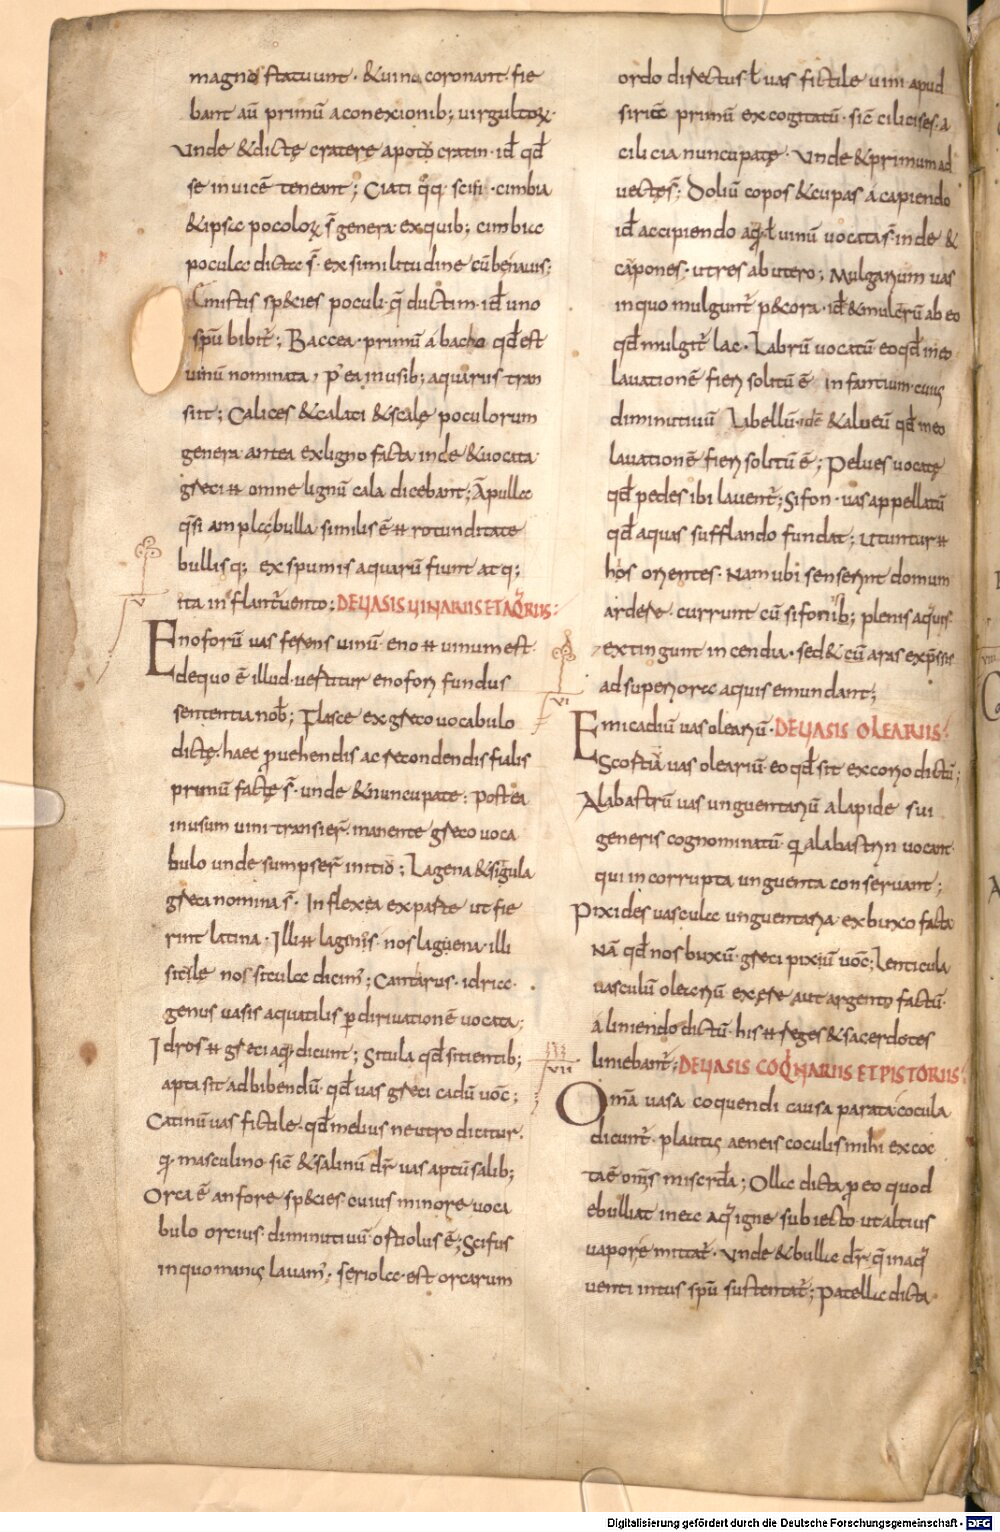 magna statuunt · & uina coronant · fie
bant aũ primũ a conexionib; uirgultoꝝ ·
Vnde & dictę craterę apo to cratin · id̃ qd̃
se inuicẽ teneant; Ciati q̃q; scifi · cimbia
& ipsa pocoloꝝ s̃ genera ex quib; cimbia
pocula dicta s̃ · ex similitudine cũbę nauis;
Amistis sp&ies poculi · q̃ ductim · id̃ uno
spũ bibit̃; Baccea · primũ a bacho qd̃ est
uinũ nominata · p̃ ea in usib; aquarũs tran
siit; Calices & calati & scalę poculorum
genera antea ex ligno facta inde & uocata
greci ħ omne lignũ cala dicebant; Ãpulla
q̃si ampla bulla similis ẽ ħ rotunditate
bullis q; ex spumis aquarũ fiunt atq;
ita inflant̃ uento; DE VASIS VINARIIS ET AQ̃RIIS:
Enoforũ uas ferens uinũ · eno ħ uinum est ·
de quo ẽ illud · uestitur enofori fundus
sententia nob̃; Flasce ex greco uocabulo
dictę · haec puehendis ac recondendis fialis
primũ factę s̃ · unde & nuncupate: postea
in usum uini transier̃ · manente greco uoca
bulo unde sumpser̃ initiũ; Lagena & sigula
greca nomina s̃ · In flexea ex parte ut fie
rint latina · Illi ħ lagenis · nos laguena · illi
sicilę nos situlae dicim̃; Cantarus · idria ·
genus uasis aquatilis p̲ diriuationẽ uocata;
Idros ħ greci aq̃ dicunt; Situla qd̃ sitientib;
apta sit ad bibendũ · qd̃ uas greci cadũ uoc̃;
Catinũ uas fictile · qd̃ melius neutro dicitur ·
q̃ masculino · sic̃ & salinũ dr̃ uas aptũ salib;
Orca ẽ anfore sp&ies cuius minore uoca
bulo orcius · diminutiuũ · ostiolus ẽ; Scifus
in quo manus lauam̃ · seriola · est orcarum
ordo directus · ł uas fictile uini apud
siriã primũ excogitatũ · sic̃ cilicises · a
cilicia nuncupatę · Vnde & primum ad
uectę s̃; Doliũ copos & cupas a capiendo
id̃ accipiendo aq̃ · ł uinũ uocata s̃ · inde &
capones · utres ab utero; Mulgarium uas
in quo mulgunt̃ p&ora · id̃ & mulcrũ ab eo
qd̃ mulgit̃ lac · Labrũ uocatũ eo qd̃ in eo
lauationẽ fieri solitũ ẽ Infantium · cuius
diminutiuũ Labellũ · ide & alueũ qd̃ in eo
lauationẽ fieri solitũ ẽ; Pelues uocatę
qd̃ pedes ibi lauent̃; Sifon · uas appellatũ
qd̃ aquas sufflando fundat; Utuntur ħ
hos orientes · Nam ubi senserint domum
ardere · currunt cũ sifonib; plenis aquis ·
extingunt incendia · sed & cũ aras exp̃ssis
ad superiora aquis emundant;
Emicadiũ uas olearium · DE VASIS OLEARIIS:
Scortia uas oleariũ · eo qd̃ sit ex corio dictũ;
Alabastrũ uas unguentariũ a lapide sui
generis cognominatũ · q̃ alabastrin uocant
qui incorrupta unguenta conseruant;
Pixides uascula unguentaria · ex buxo facta
Nã qd̃ nos buxũ · greci pixiũ uoc̃; Lenticula
uasculũ oleariũ ex ere aut argento factũ ·
a liniendo dictũ · his ħ reges & sacerdotes
liniebant̃; DE VASIS COQ̃NARIIS ET PISTORIIS:
Omã uasa coquendi causa parata cocula
dicunt̃ · plautus aeneis coculis mihi excoc
ta ẽ om̃s miserc̃da; Olla dicta p eo quod
ebulliat in ea aq̃ igne subiecto ut altius
uapore mittat̃ · Vnde & bulla dr̃ · q̃ in aq̃
uenti intus spũ sustentat̃; Patella dicta
V
VI
VII
Digitalisierung gefördert durch die Deutsche Forschungsgemeinschaft - DFG